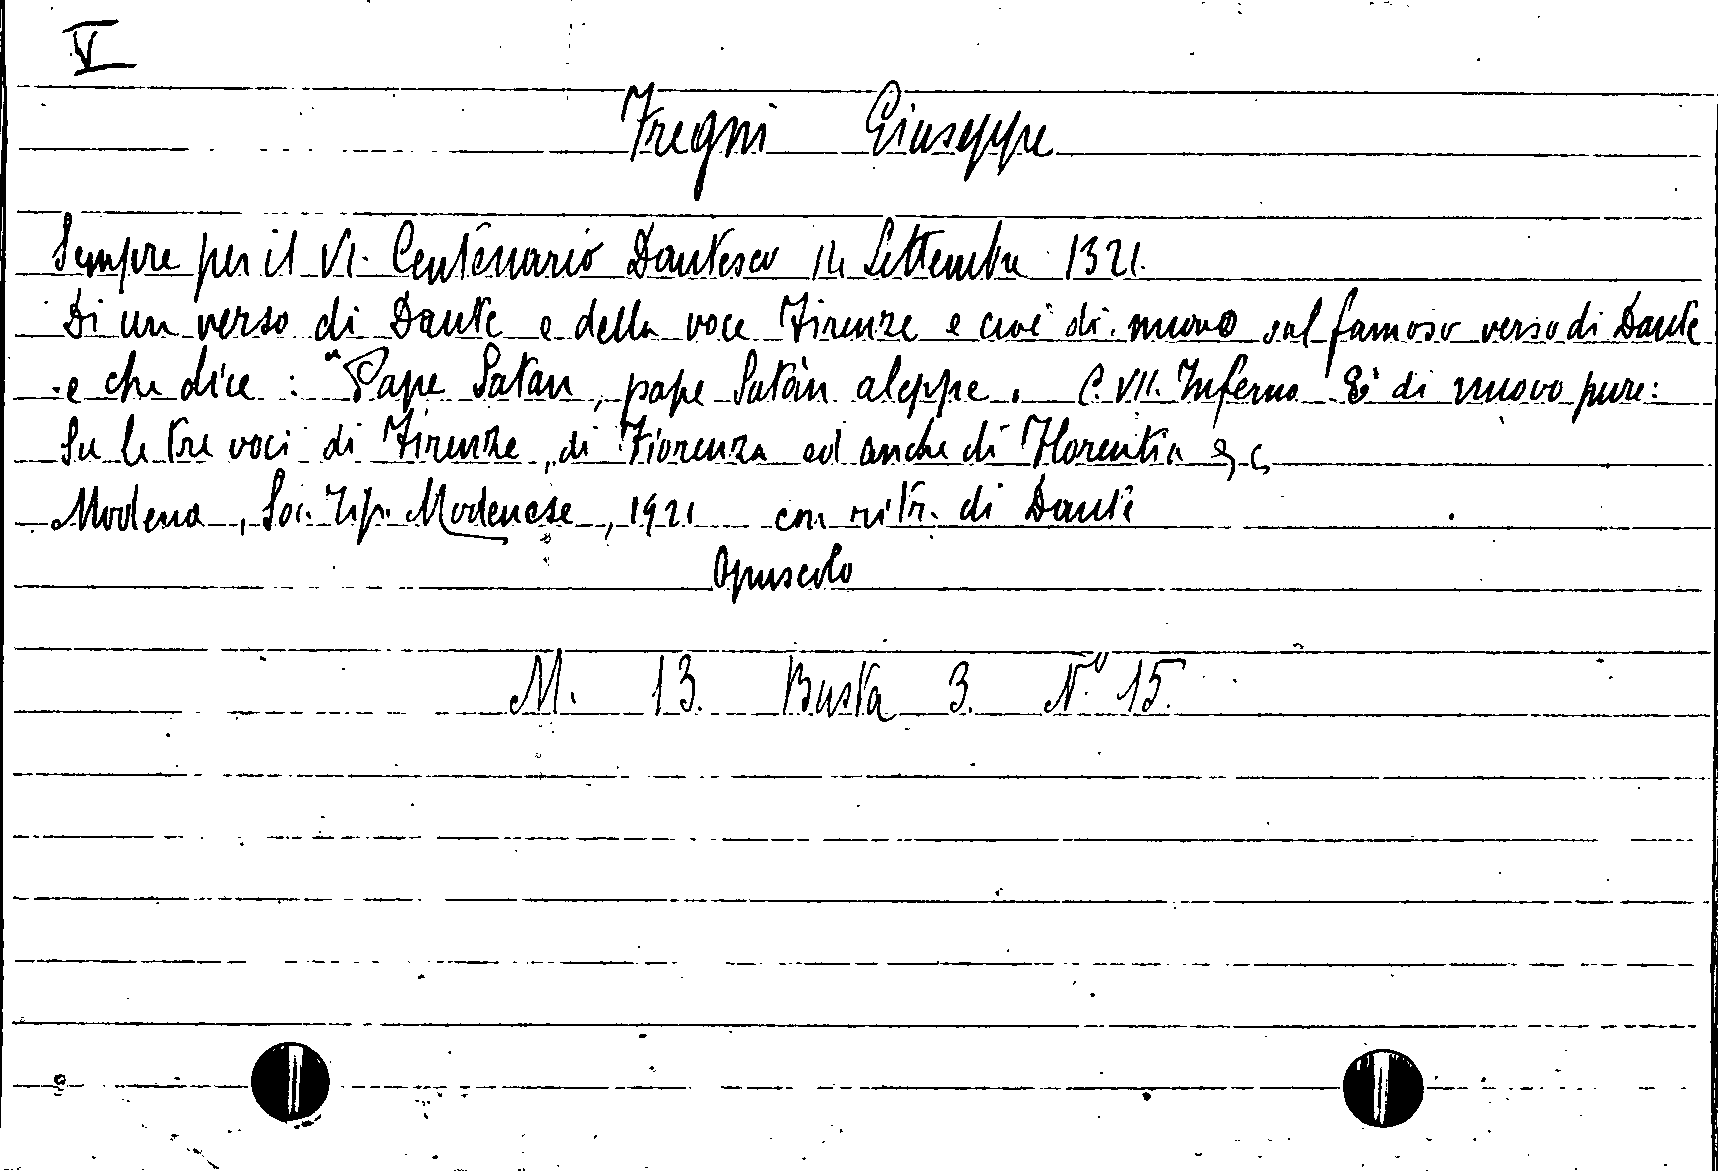 V
Fregni Giuseppe
Sempre per il VI. Centenario Dantesco 14 Settembre 1321.
Di un verso di Dante e della voce Firenze e cioè di nuovo sul famoso verso di Dante
e che dice : "Pape Satan, pape Satàn aleppe. C. VII. Inferno E di nuovo pure:
Su le tre voci di Firenze, di Fiorenza ed anche di Florentia &c
Modena, Soc. Tip. Modenese, 1921 con ritr. di Dante
Opuscolo
M. 13. Busta 3. N.º 15.